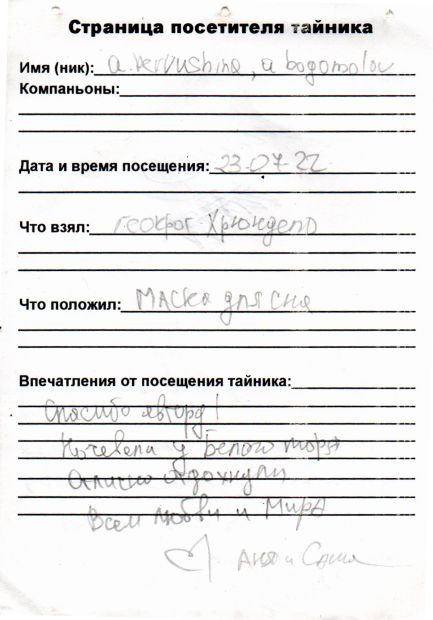 Страница посетителя тайника
Имя (ник): a.pervushina, a bogomolov
Компаньоны:
Дата и время посещения: 23-07-22
Что взял: геокрот Хрюндель
Что положил: Маска для сна
Впечатления от посещения тайника:
Спасибо автору!
Ночевали у Белого моря
Отлично отдохнули
Всем любви и Мира
Аня и Саша